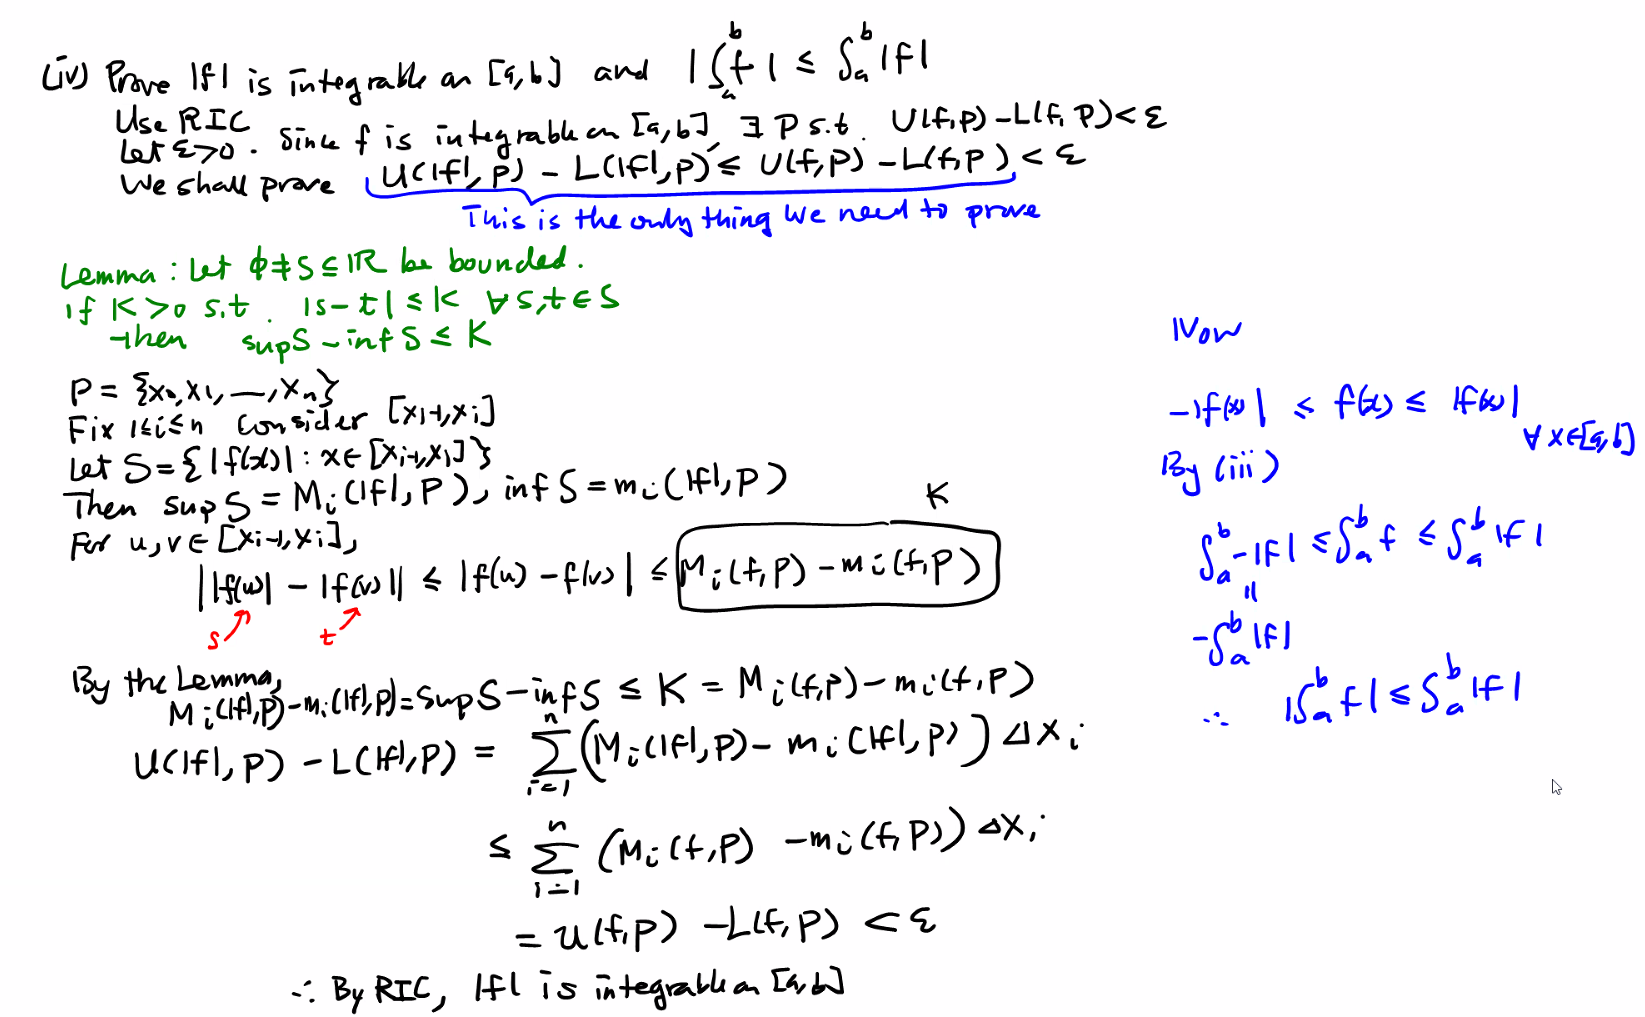 (iv) Prove |f| is integrable on [a,b] and |∫_a^b f| ≤ ∫_a^b |f|
Use RIC
Let ε>0. Since f is integrable on [a,b], ∃ P s.t. U(f,P) - L(f,P) < ε
We shall prove U(|f|,P) - L(|f|,P) ≤ U(f,P) - L(f,P) < ε
This is the only thing we need to prove
Lemma: Let φ ≠ S ⊆ ℝ be bounded.
if K>0 s.t. |s-t| ≤ K ∀ s,t ∈ S
then sup S - inf S ≤ K
P = {x₀, x₁, —, xₙ}
Fix 1≤i≤n consider [x_{i-1}, x_i]
Let S = {|f(x)| : x ∈ [x_{i-1}, x_i]}
Then sup S = M_i(|f|,P), inf S = m_i(|f|,P)
For u,v ∈ [x_{i-1}, x_i],
K
||f(u)| - |f(v)|| ≤ |f(u) - f(v)| ≤ M_i(f,P) - m_i(f,P)
s t
By the Lemma,
M_i(|f|,P) - m_i(|f|,P) = sup S - inf S ≤ K = M_i(f,P) - m_i(f,P)
U(|f|,P) - L(|f|,P) = ∑_{i=1}^n (M_i(|f|,P) - m_i(|f|,P)) Δx_i
≤ ∑_{i=1}^n (M_i(f,P) - m_i(f,P)) Δx_i
= U(f,P) - L(f,P) < ε
∴ By RIC, |f| is integrable on [a,b]
Now
-|f(x)| ≤ f(x) ≤ |f(x)|
∀ x∈[a,b]
By (iii)
∫_a^b -|f| ≤ ∫_a^b f ≤ ∫_a^b |f|
=
-∫_a^b |f|
∴ |∫_a^b f| ≤ ∫_a^b |f|